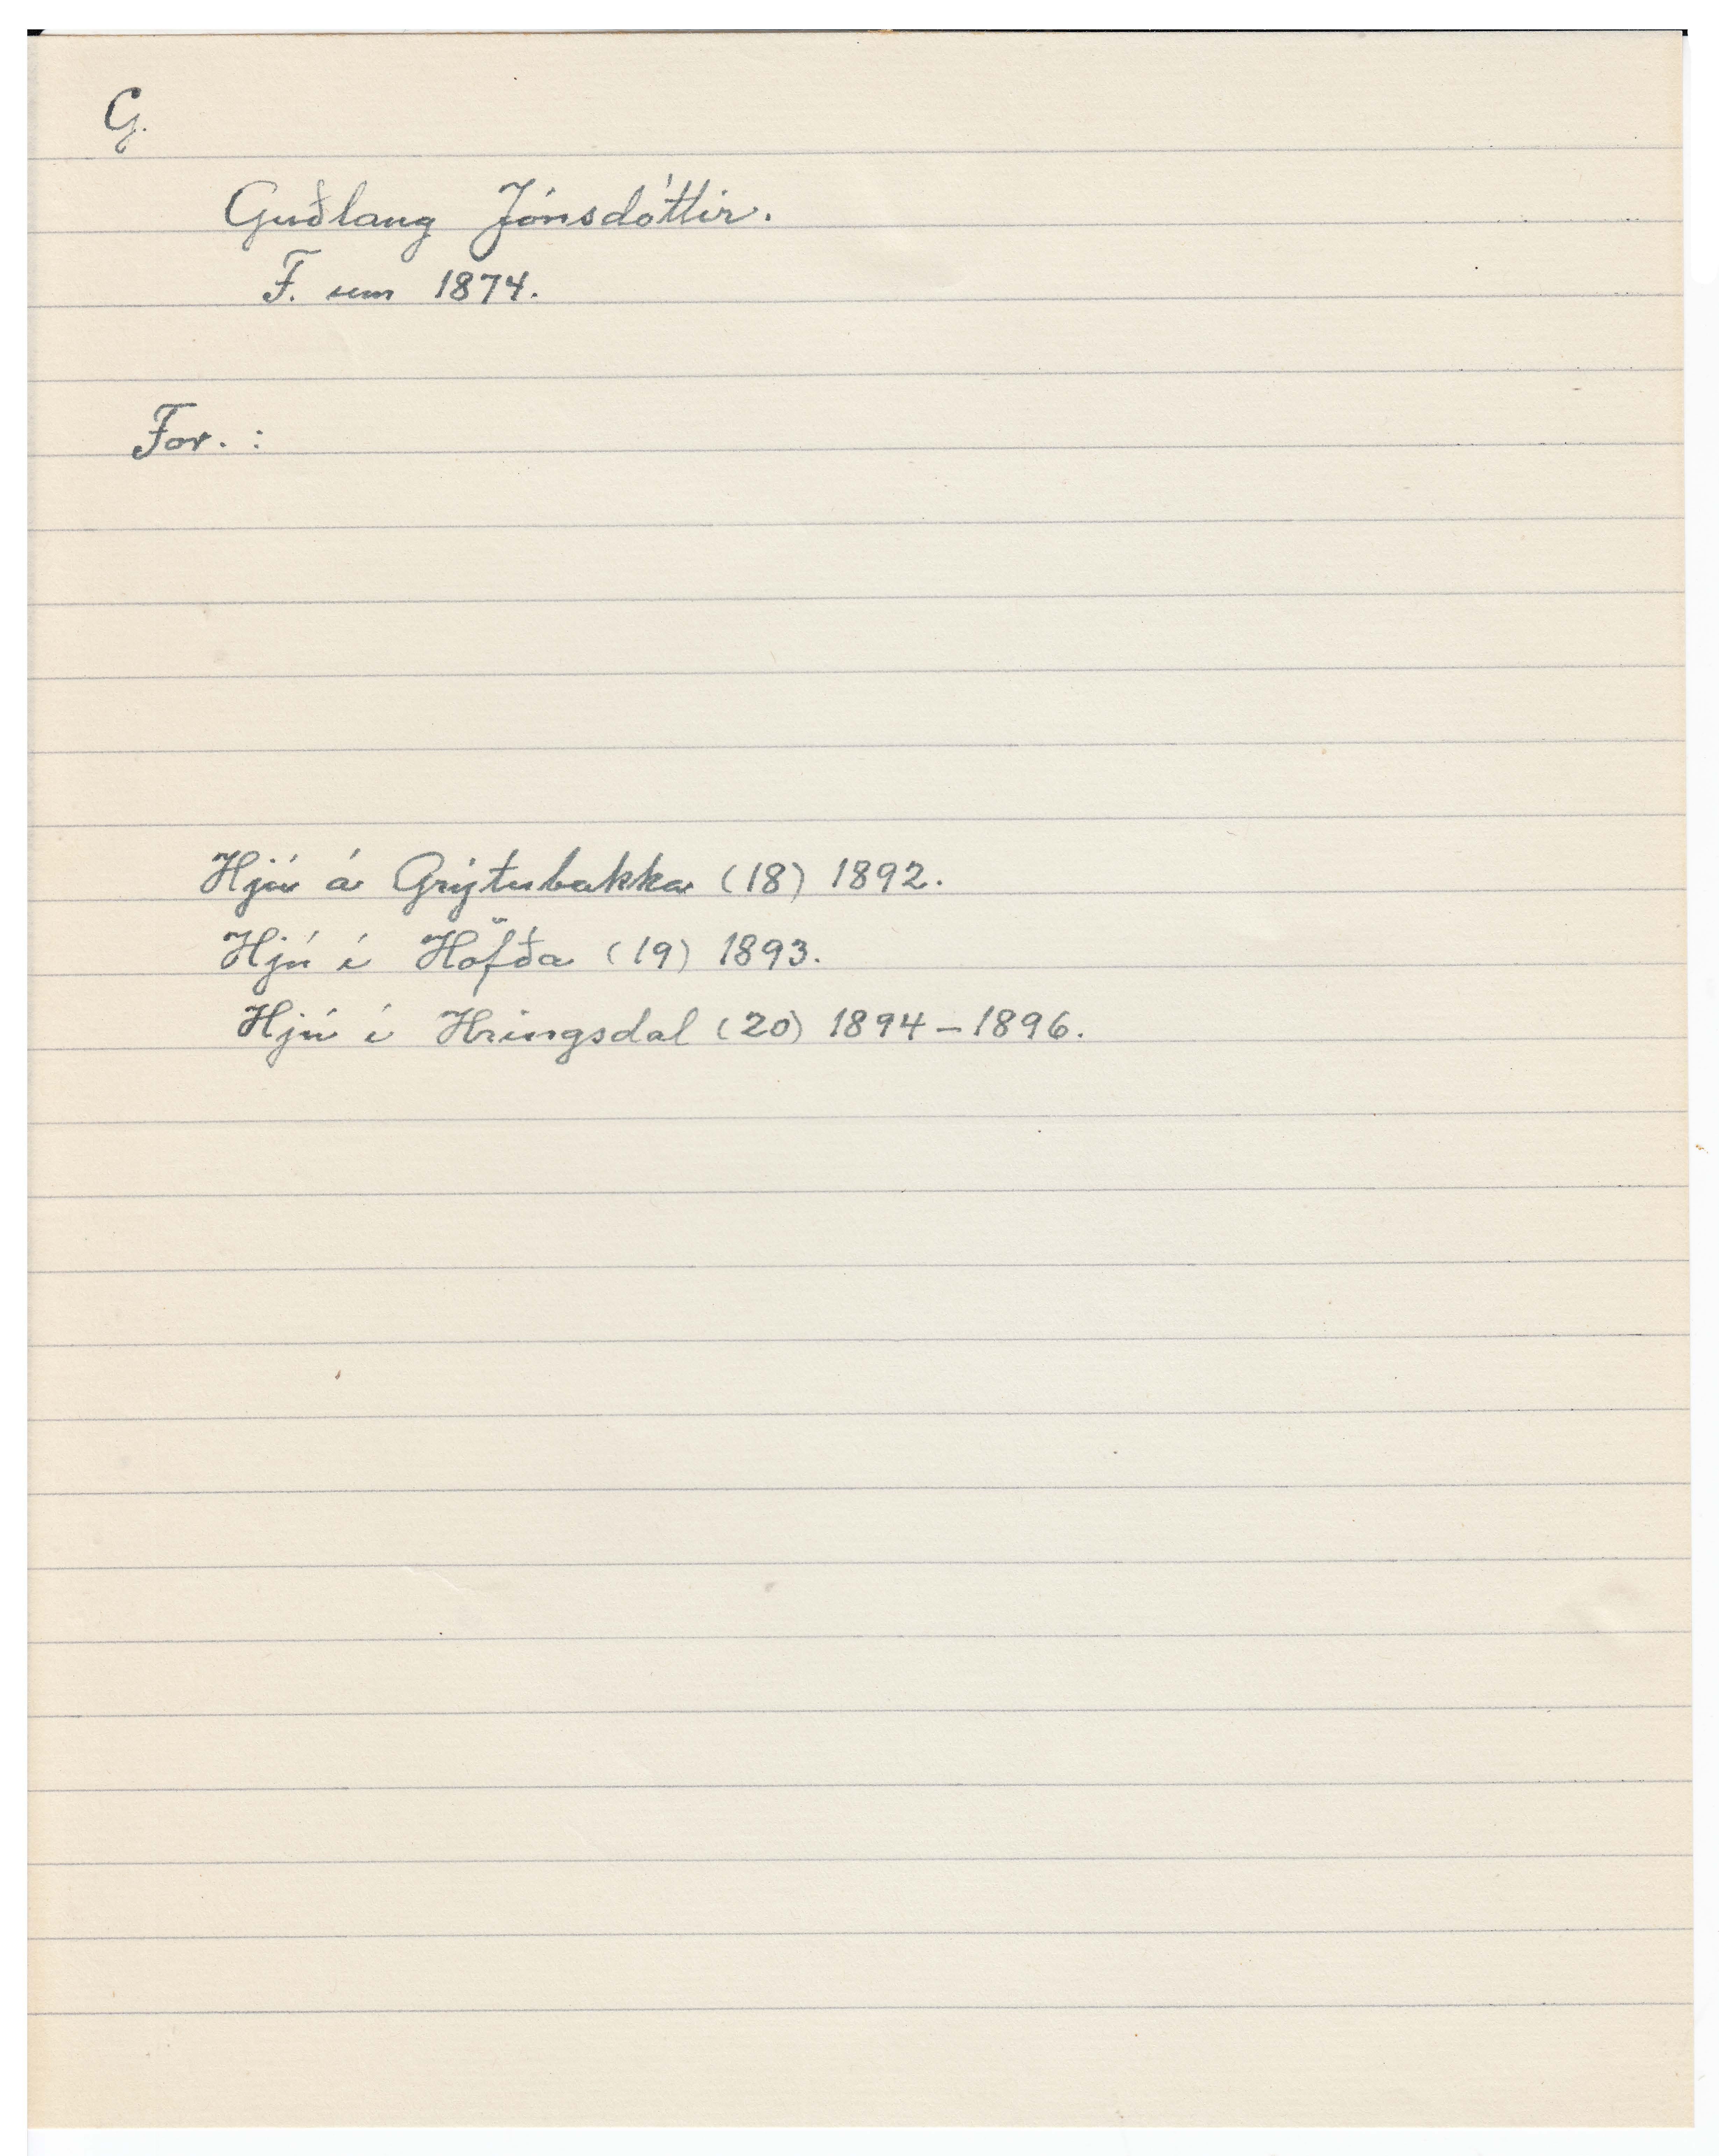 G.
Guðlaug Jónsdóttir.
F. um 1874.
For. :
Hjú á Grýtubakka (18) 1892.
Hjú í Höfða (19) 1893.
Hjú í Hringsdal (20) 1894-1896.